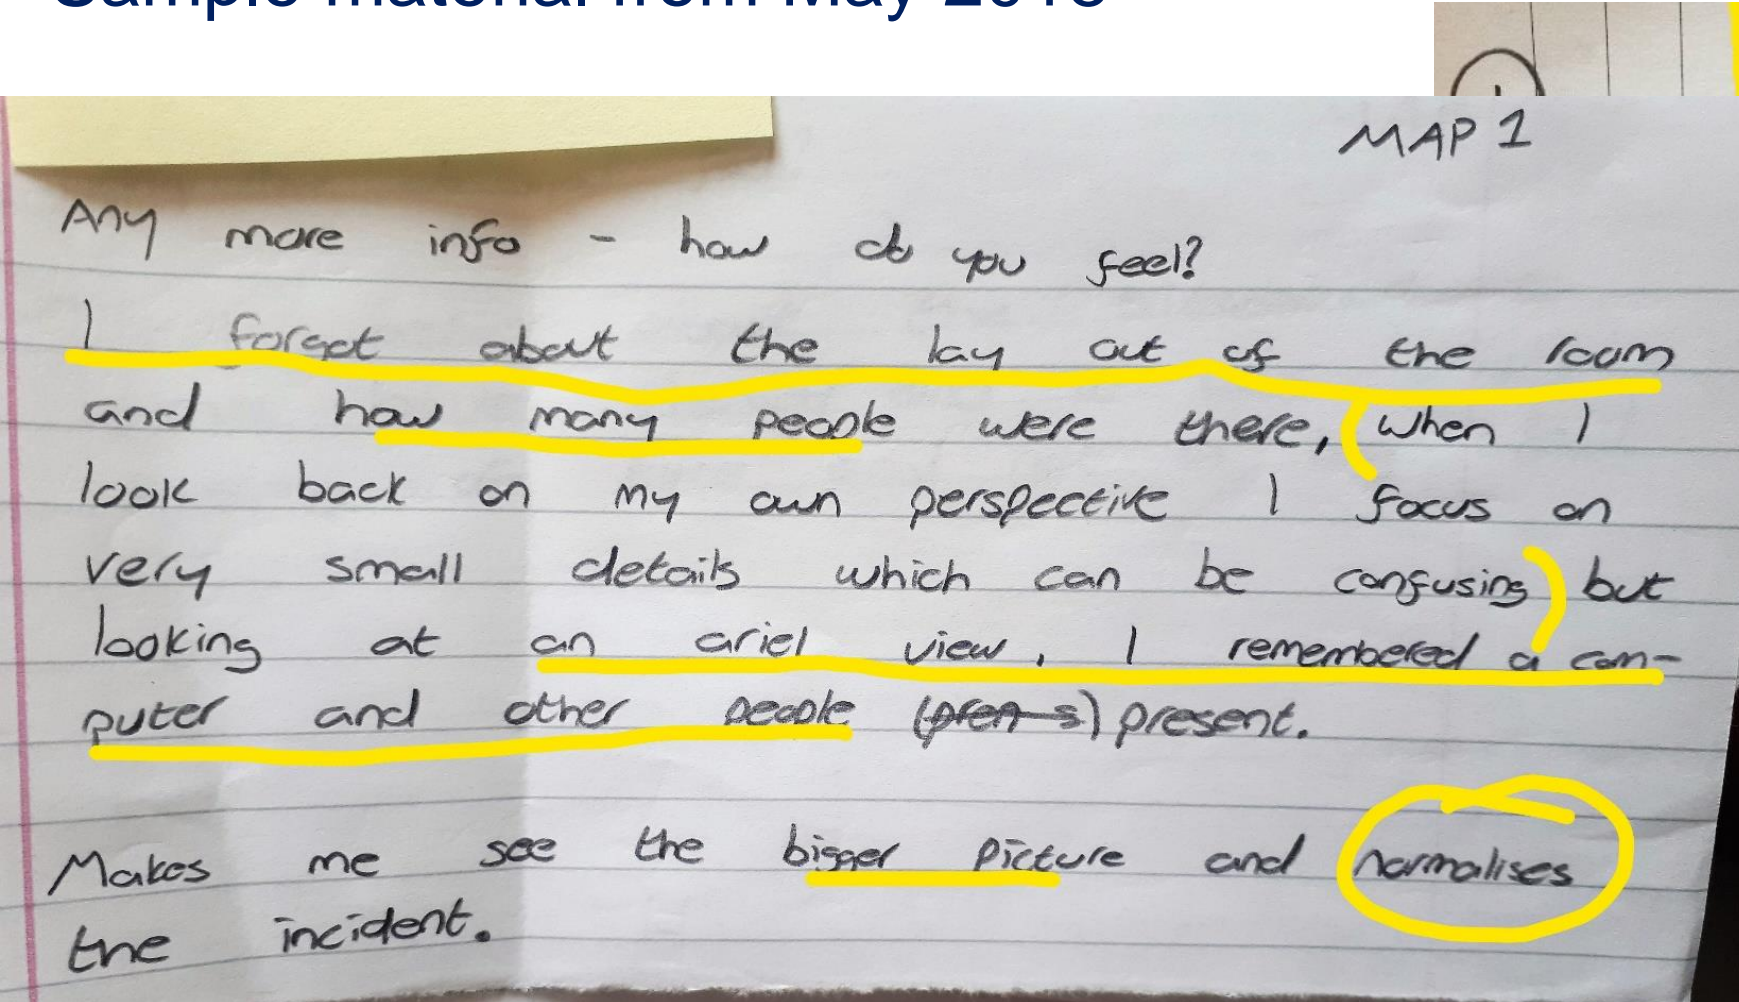 Sample material from May 2018
MAP 1
Any more info - how do you feel?
I forget about the lay out of the room
and how many people were there, (when I
look back on my own perspective I focus on
very small details which can be confusing) but
looking at an ariel view, I remembered a com-
puter and other people (pren s) present.
Makes me see the bigger picture and normalises
the incident.